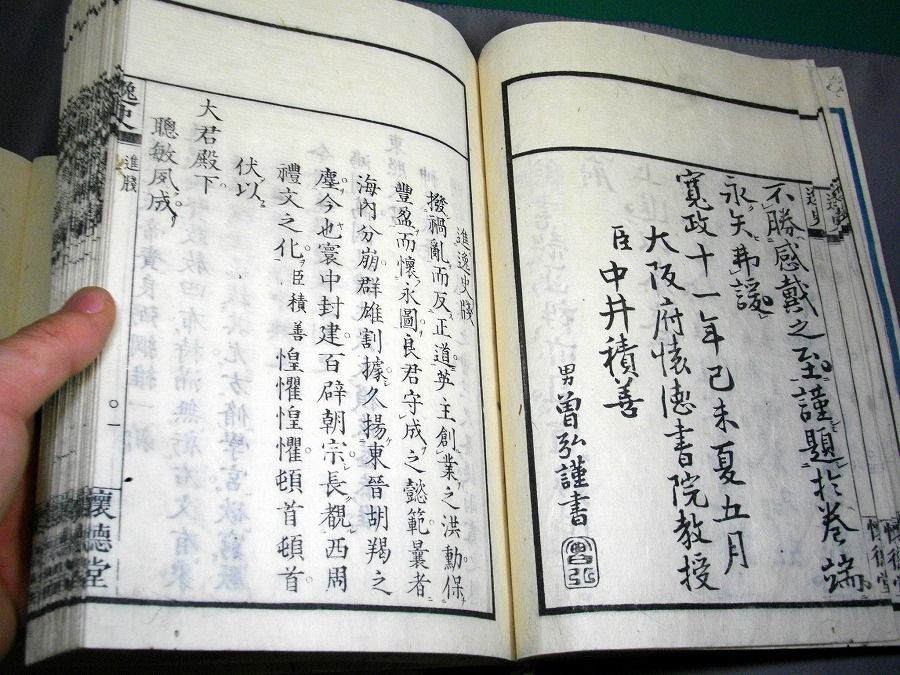 不勝感戴之至謹題於卷端
永矢弗諼
寬政十一年己未夏五月
大阪府懷德書院教授
臣中井積善
男曾弘謹書
曾弘
進逸史牋
撥禍亂而反正道英主創業之洪勳保
豐盈而懷永圖良君守成之懿範曩者
海內分崩群雄割據久揚東晉胡羯之
塵今也寰中封建百辟朝宗長覩西周
禮文之化臣積善惶懼惶懼頓首頓首
伏以
大君殿下
聰敏夙成
逸史
進牋
○一
懷德堂